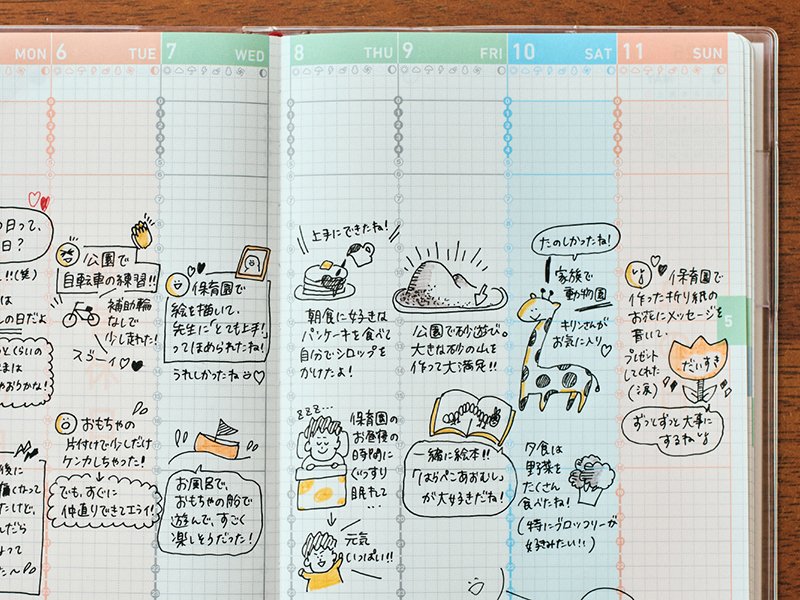 MON
6 TUE
7 WED
8 THU
9 FRI
10 SAT
11 SUN
5
公園で
自転車の練習!!
補助輪
なしで
少し走れた!
スゴーイ
おもちゃの
片付けで少しだけ
ケンカしちゃった!
でも、すぐに
仲直りできてエライ!
保育園で
絵を描いて、
先生に「とても上手!」
ってほめられたね!
うれしかったね
お風呂で、
おもちゃの船で
遊んで、すごく
楽しそうだった!
上手にできたね!
朝食に好きな
パンケーキを食べて
自分でシロップを
かけたよ!
zzz...
保育園の
お昼寝の
時間に
ぐっすり
眠れて…
元気
いっぱい!!
公園で砂遊び。
大きな砂の山を
作って大満足!!
一緒に絵本!!
「はらぺこあおむし」
が大好きだね!
たのしかったね!
家族で
動物園
キリンさんが
お気に入り
夕食は
野菜を
たくさん
食べたね!
(特にブロッコリーが
好きみたい!!)
保育園で
作った折り紙の
お花にメッセージを
書いて、
プレゼント
してくれた
(涙)
だいすき
ずっとずっと大事に
するね